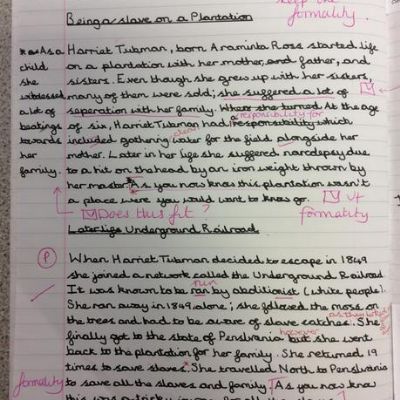 keep the
formality.
Being a slave on a Plantation
As a Harriet Tubman, born Araminta Ross started life
child on a plantation with her mother, and father, and
she sisters. Even though she grew up with her sisters,
witdessed many of them were sold; she suffered a lot of
a lot of seperation with her family. Where she turned At the age
beatings of six, Harriet Tubman had responsibility which
a responsibility for
towards included gathering water for the field alongside her
clean
her mother. Later in her life she suffered narcdepsy due
family. to a hit on the head by an iron weight thrown by
her master. As you now know this plantation wasn't
a place were you would want to know go.
Does this fit?
formality
Later life Underground Railroad
P
When Harriet Tubman decided to escape in 1849
she joined a network called the Underground Railroad
run
It was known to be ran by abolitionist (white people).
She ran away in 1849 alone; she followed the moss on
the trees and had to be aware of slave catches. She
as they worked
however
finally got to the state of Penslvania but she went
back to the plantation for her family. She returned 19
times to save slaves. She travelled North to Penslvania
formality to save all the slaves and family. As you now know
this was a tricky